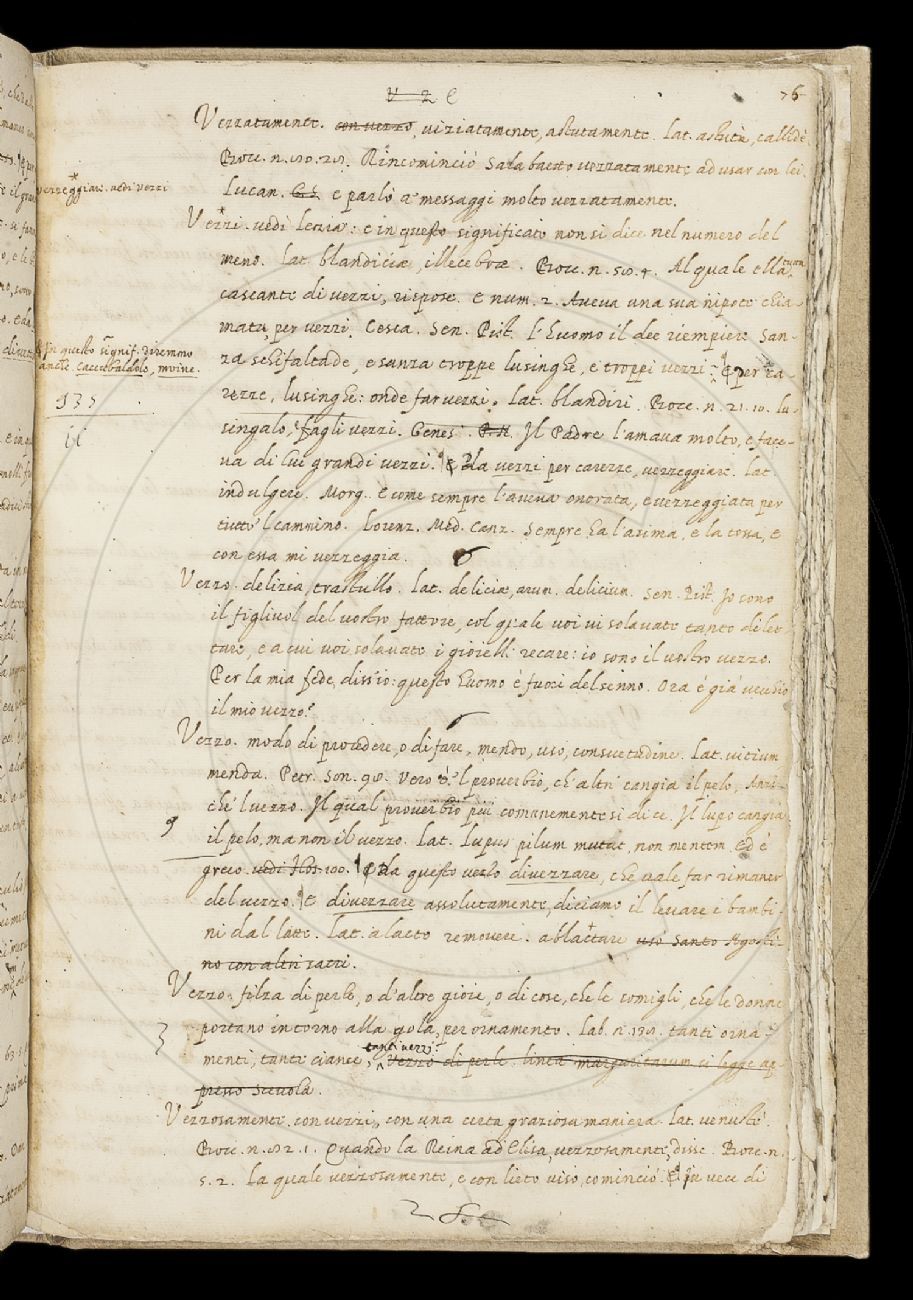 V Z E
76
Vezzatamente. con vezzo, viziatamente, astutamente. Lat. astutè, callidè
Bocc. n. 80. 28. Rincominciò Salabaeto vezzatamente ad usar con lei.
Lucan. e parlò a' messaggi molto vezzatamente.
Vezzeggiare. vedi vezzi
Vezzi. vedi lezia: e in questo significato non si dice nel numero del
meno. Lat. blanditiae, illecebrae. Bocc. n. 50. 4. Al quale ella, tutta
cascante di vezzi, rispose. e num. 2. Aveva una sua nipote chia-
mata, per vezzi, Cesca. Sen. Pist. L'huomo il dee riempiere San-
In questo signif. diremmo
anche. caccabaldole, moine.
za schifaltade, e sanza troppe lusinghe, e troppi vezzi. E per ca-
rezze, lusinghe: onde far vezzi. Lat. blandiri. Bocc. n. 21. 10. lu-
135
singalo, fagli vezzi. Genes. Il Padre l'amava molto, e face-
66
va di lui grandi vezzi. E da vezzi per carezze, vezzeggiare. Lat.
indulgere. Morg. e come sempre l'aveva onorata, e vezzeggiata per
tutto 'l cammino. Lorenz. Med. Canz. Sempre ha l'asima, e la tossa, e
con essa mi vezzeggia.
Vezzo. delizia, trastullo. Lat. deliciae, arum. delicium. Sen. Pist. Io sono
il figliuol del vostro fattore, col quale voi vi solavate tanto dilet-
tare, e a cui voi solavate i gioielli recare: io sono il vostro vezzo.
Per la mia fede, diss'io: questo huomo è fuori del senno. Ora è già vecchio
il mio vezzo?
Vezzo. modo di procedere, o di fare, mendo, uso, consuetudine. Lat. vitium
menda. Petr. Son. 98. Vero è 'l proverbio, ch'altri cangia il pelo, Anzi-
che 'l vezzo. Il qual proverbio più comunemente si dice. Il lupo cangia
9
il pelo, ma non il vezzo. Lat. Lupus pilum mutat, non mentem. ed è
greco. vedi Flos. 100. E da questo verbo divezzare, che vale far rimaner
del vezzo. E divezzare assolutamente, diciamo il levare i bambi-
ni dal latte. Lat. a lacte removere. ablactare uso Santo Agosti-
no con altri sacri.
Vezzo. filza di perle, o d'altre gioie, o di cose, che le somigli, che le donne
portano intorno alla gola, per ornamento. Lab. n. 138. tanti orna-
tanti vezzi.
menti, tante ciance, Vezzo di perle. linea margaritarum si legge ap-
presso Scevola.
Vezzosamente. con vezzi, con una certa graziosa maniera. Lat. venustè.
Bocc. n. 82. 1. Quando la Reina ad Elisa, vezzosamente, disse. Bocc. n.
5. 2. La quale vezzosamente, e con lieto viso, cominciò. E in vece di